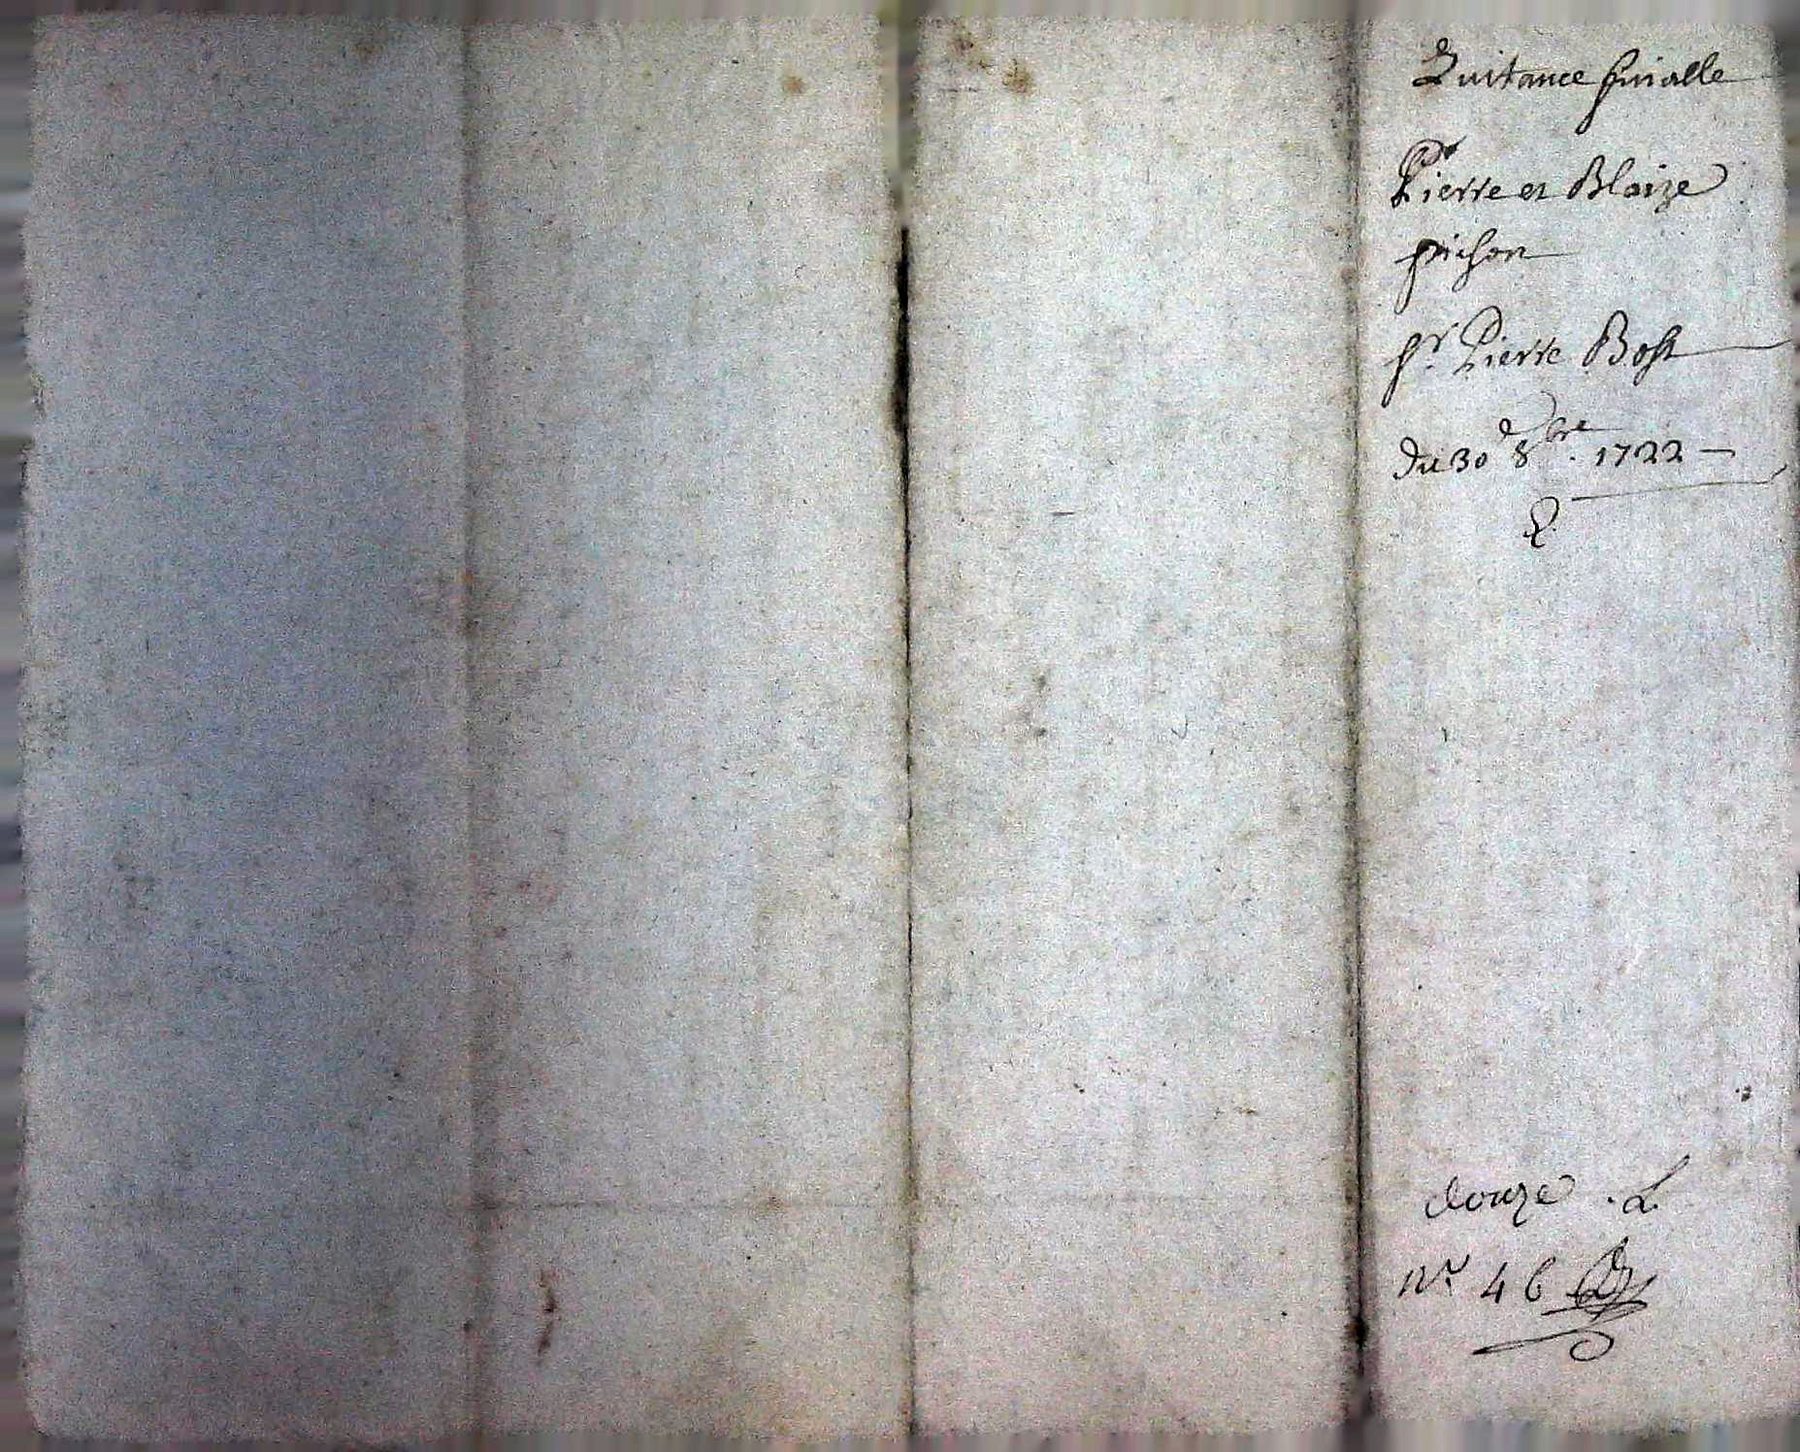 Quitance finalle
Pierre et Blaize
pichon
pr. Pierre Bost
du 30 d 8bre. 1722
douze . L
nr. 46